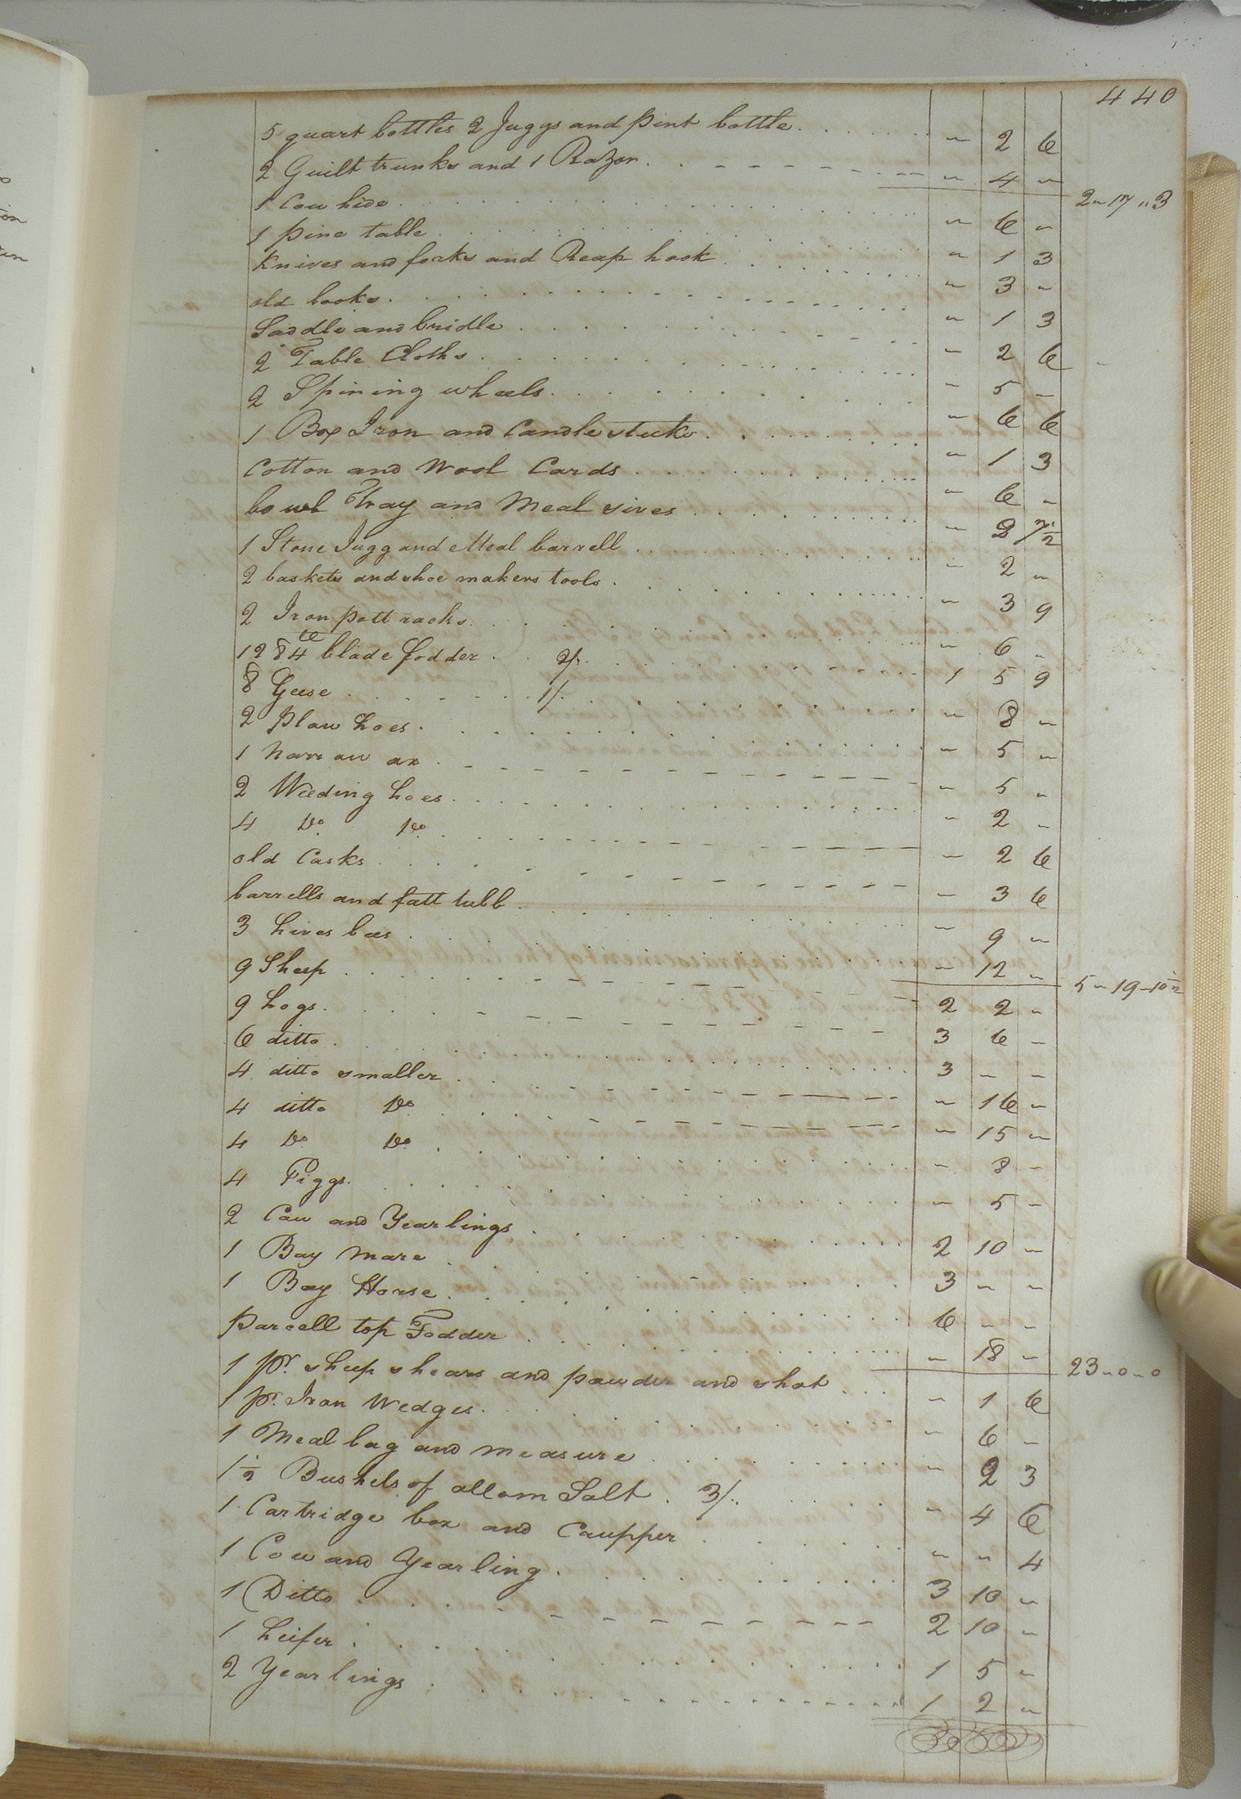 440
5 quart bottles 2 Juggs and pint bottle . . . . . . " 2 6
2 Guilt trunks and 1 Razor . . . . . . " 4 "
2 " 17 " 3
1 Cow hide . . . . . . " 6 "
1 pine table . . . . . . " 1 3
Knives and forks and Reap hook . . . . . . " 3 "
old books . . . . . . " 1 3
Saddle and bridle . . . . . . " 2 6
2 Table Cloths . . . . . . " 5 "
2 Spining wheels . . . . . . " 6 6
1 Box Iron and Candlesticks . . . . . . " 1 3
Cotton and Wool Cards . . . . . . " 6 "
bowl Tray and Meal sives . . . . . . " 3 7½
1 Stone Jugg and Meal barrell . . . . . . " 2 "
2 baskets and shoe makers tools . . . . . . " 3 9
2 Iron pott racks . . . . . . " 6 "
128 lb blade fodder . . 2/. . . . . . . 1 5 9
8 Geese . . . . . . 1/. . . . . . . " 8 "
2 plow hoes . . . . . . " 5 "
1 narrow ax . . . . . . " 5 "
2 Weeding hoes . . . . . . " 2 "
4 Do Do . . . . . . " 2 6
old Casks . . . . . . " 3 6
barrells and fatt tubb . . . . . . " 9 "
3 hives bees . . . . . . " 12 "
5 " 19 " 10½
9 Sheep . . . . . . 2 2 "
9 hogs . . . . . . 3 6 "
6 ditto . . . . . . 3 " "
4 ditto smaller . . . . . . " 16 "
4 ditto Do . . . . . . " 15 "
4 Do Do . . . . . . " 8 "
4 Piggs . . . . . . " 5 "
2 Cow and Yearlings . . . . . . 2 10 "
1 Bay mare . . . . . . 3 " "
1 Bay Horse . . . . . . 6 " "
parcell top Fodder . . . . . . " 18 "
23 " 0 " 0
1 pr. sheep shears and powder and shot . . . " 1 6
1 pr. Iron Wedges . . . . . . " 6 "
1 Meal bag and measure . . . . . . " 2 3
1½ Bushels of allom Salt . 3/. . . . . . . " 4 6
1 Cartridge box and Caupper . . . . . . " " 4
1 Cow and Yearling . . . . . . 3 10 "
1 Ditto . . . . . . 2 10 "
1 heifer . . . . . . 1 5 "
2 Yearlings . . . . . . 1 2 "